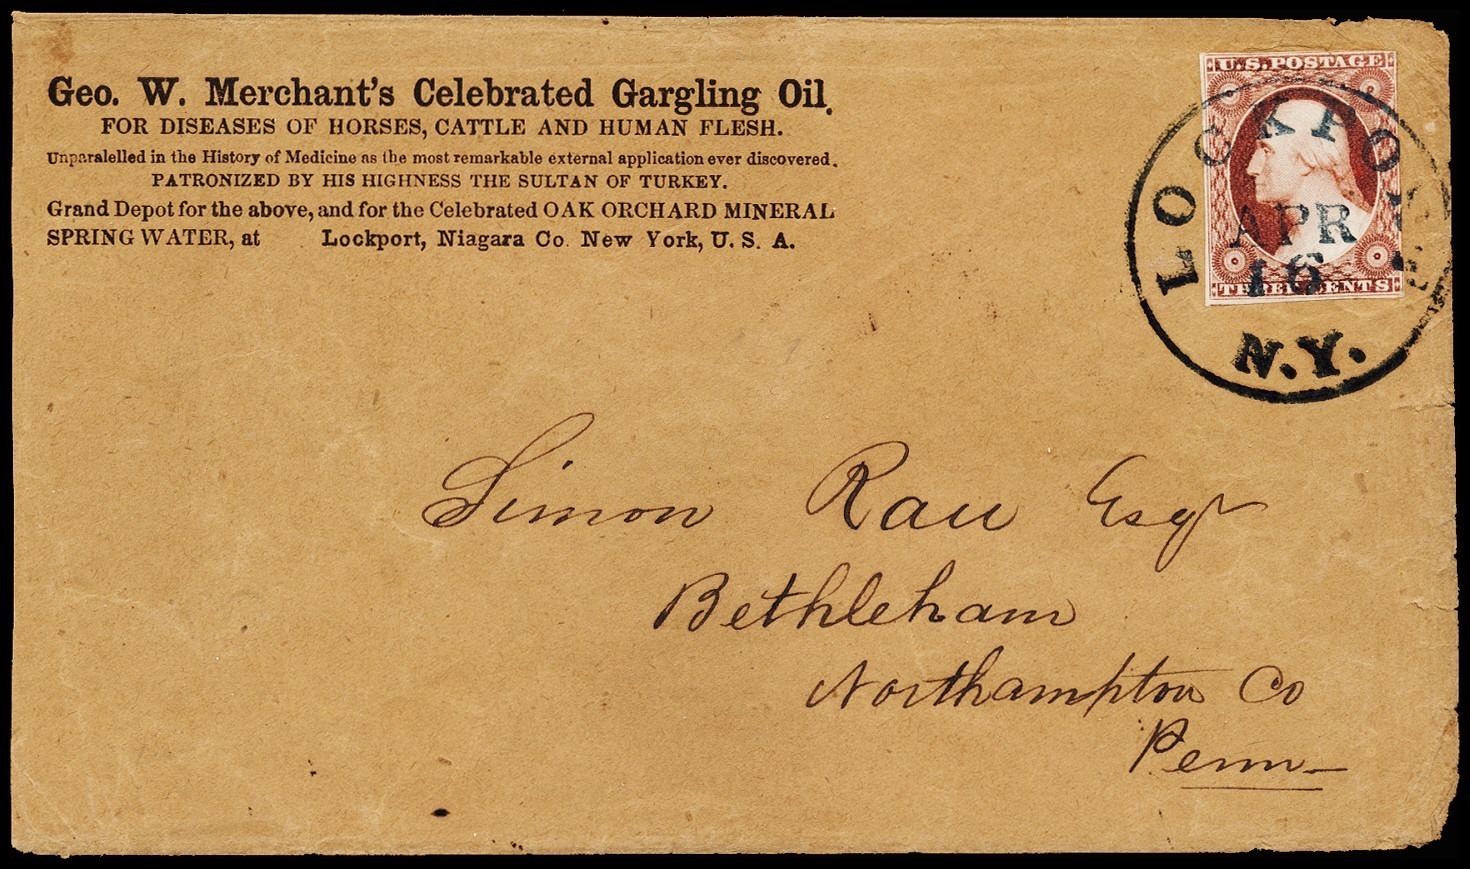 Geo. W. Merchant's Celebrated Gargling Oil.
FOR DISEASES OF HORSES, CATTLE AND HUMAN FLESH.
Unparalelled in the History of Medicine as the most remarkable external application ever discovered.
PATRONIZED BY HIS HIGHNESS THE SULTAN OF TURKEY.
Grand Depot for the above, and for the Celebrated OAK ORCHARD MINERAL
SPRING WATER, at Lockport, Niagara Co. New York, U. S. A.
U.S. POSTAGE
THREE CENTS
LOCKPORT
APR
16
N.Y.
Simon Rau Esqr
Bethleham
Northampton Co
Penn